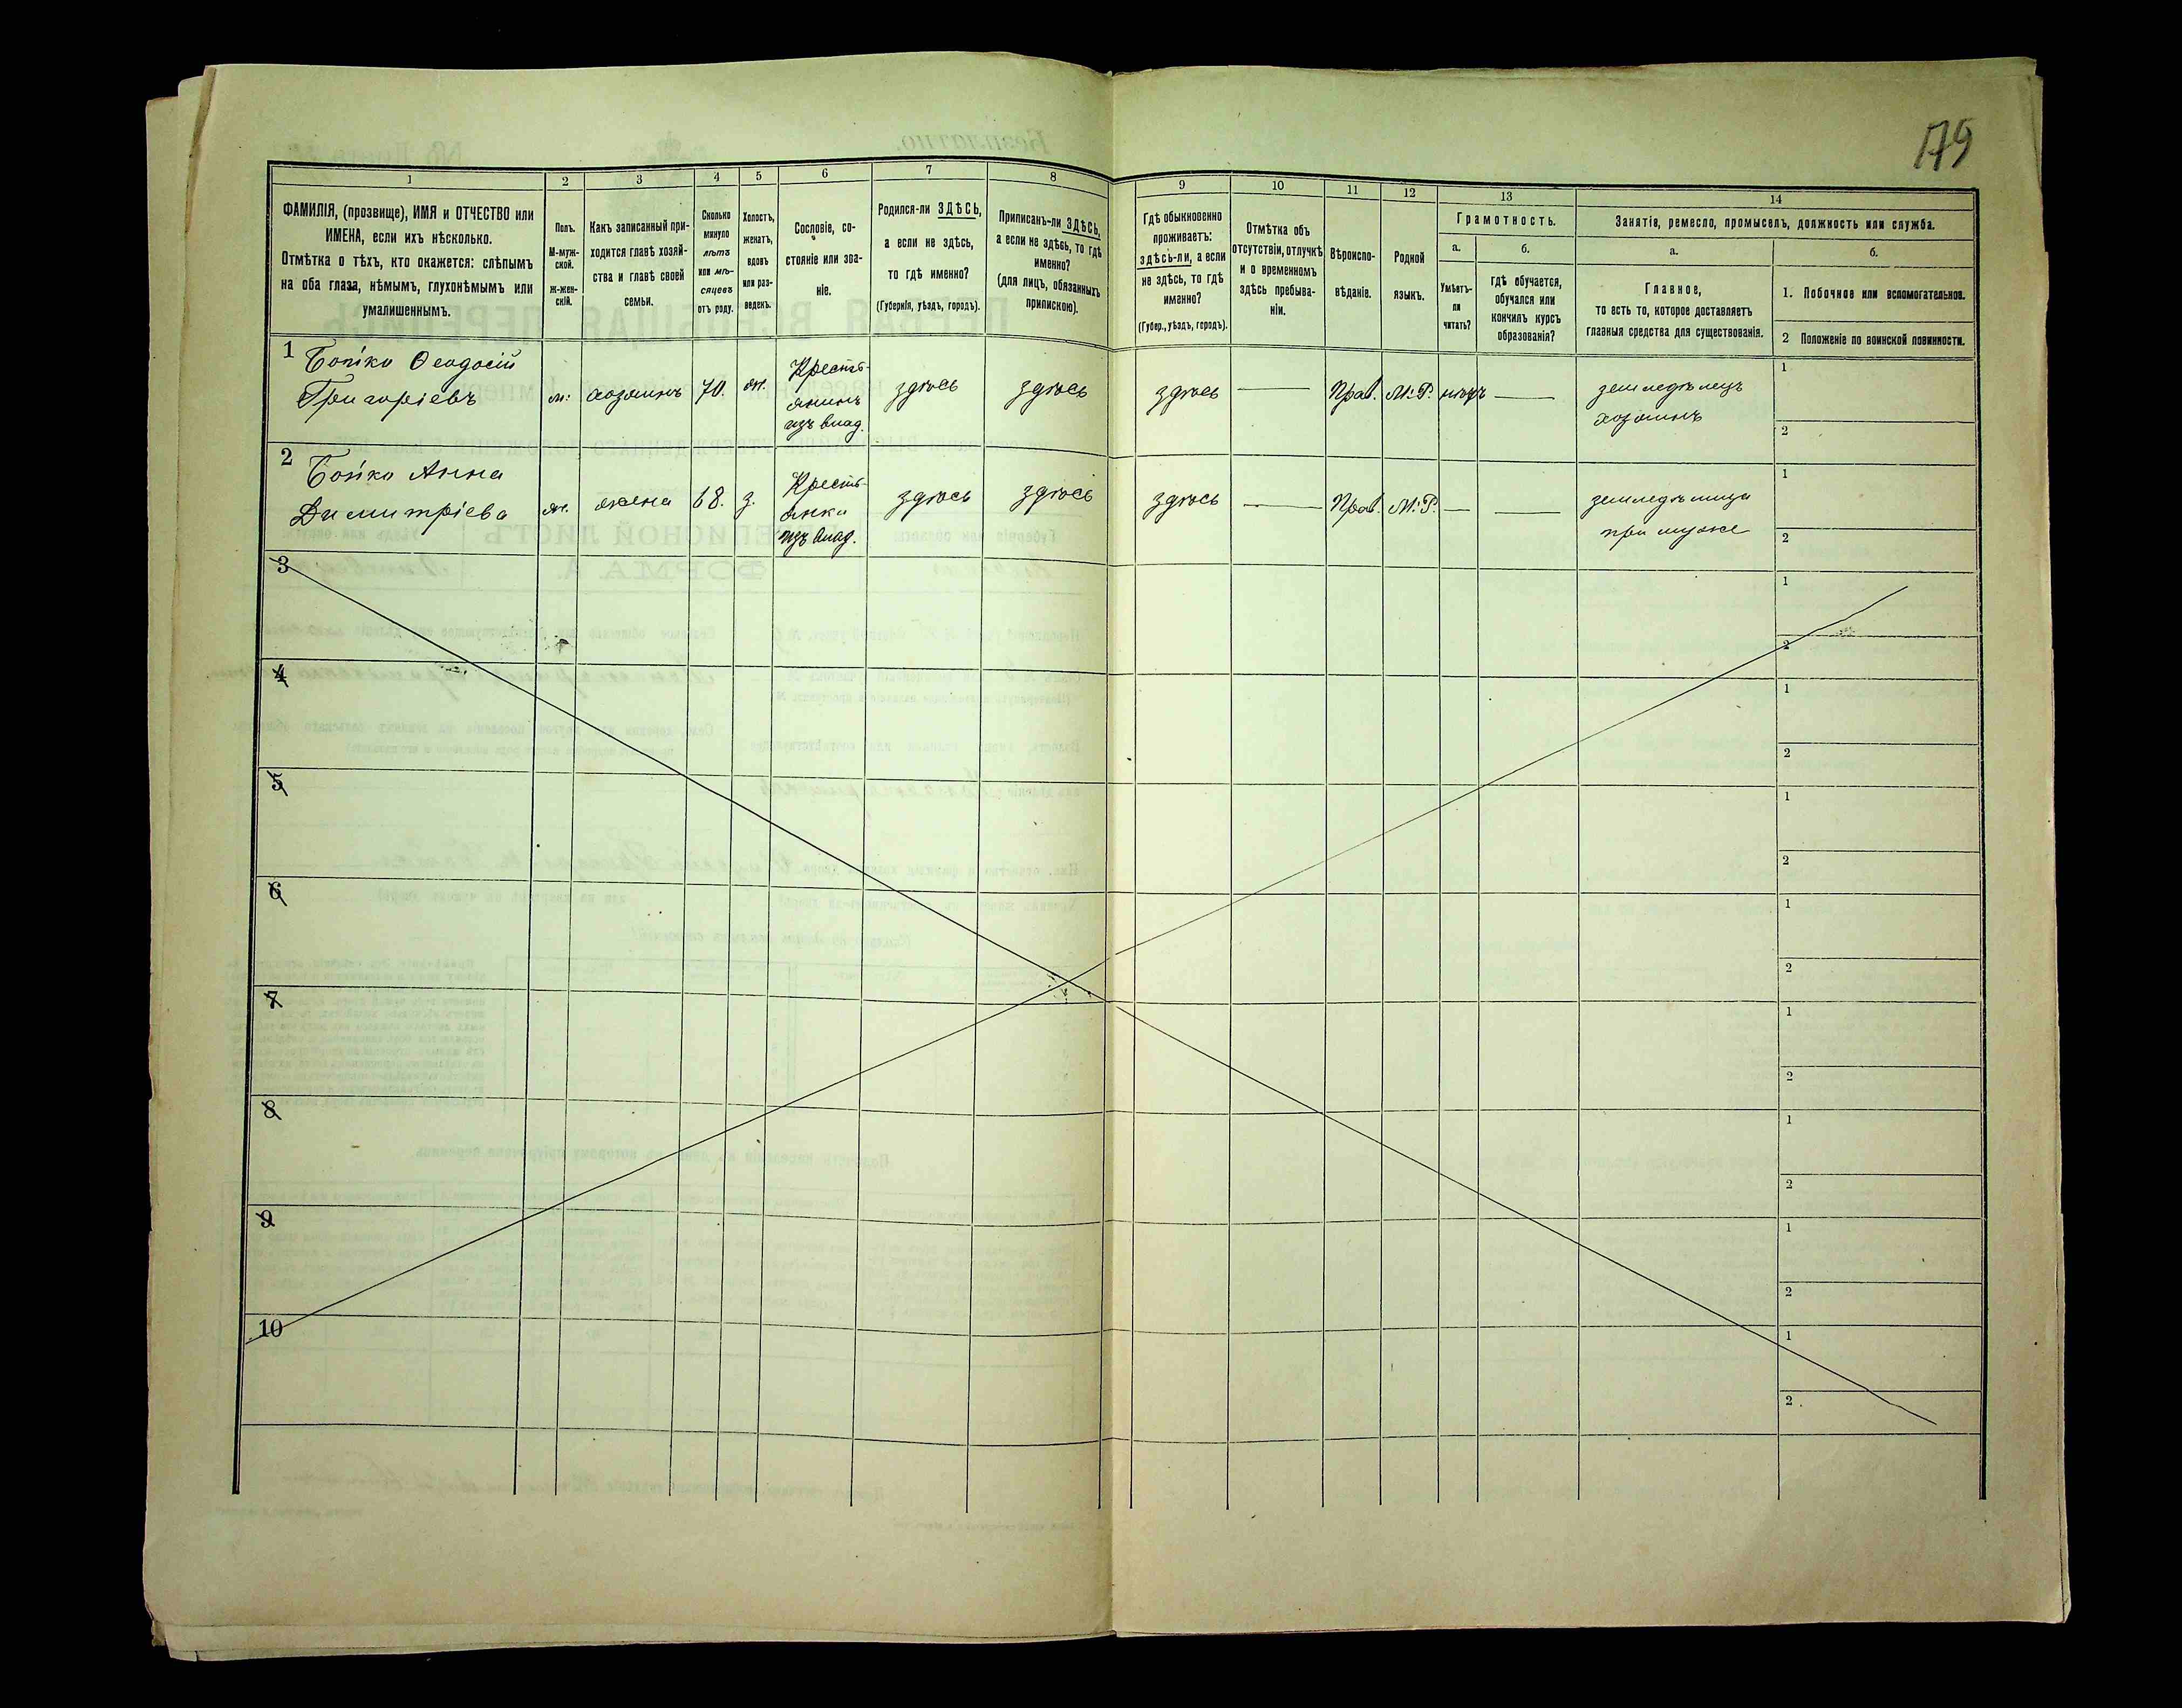 179
1
2
3
4
5
6
7
8
9
10
11
12
13
14
ФАМИЛІЯ, (прозвище), ИМЯ и ОТЧЕСТВО или
ИМЕНА, если ихъ нѣсколько.
Отмѣтка о тѣхъ, кто окажется: слѣпымъ
на оба глаза, нѣмымъ, глухонѣмымъ или
умалишеннымъ.
Полъ.
М-муж-
ской.
Ж-жен-
скій.
Какъ записанный при-
ходится главѣ хозяй-
ства и главѣ своей
семьи.
Сколько
минуло
лѣтъ
или мѣ-
сяцевъ
отъ роду.
Холостъ,
женатъ,
вдовъ
или раз-
веденъ.
Сословіе, со-
стояніе или зва-
ніе.
Родился-ли ЗДѢСЬ,
а если не здѣсь,
то гдѣ именно?
(Губернія, уѣздъ, городъ).
Приписанъ-ли ЗДѢСЬ,
а если не здѣсь, то гдѣ
именно?
(для лицъ, обязанныхъ
припискою).
Гдѣ обыкновенно
проживаетъ:
здѣсь-ли, а если
не здѣсь, то гдѣ
именно?
(Губер., уѣздъ, городъ).
Отмѣтка объ
отсутствіи, отлучкѣ
и о временномъ
здѣсь пребыва-
ніи.
Вѣроиспо-
вѣданіе.
Родной
языкъ.
Грамотность.
а.
Умѣетъ-
ли
читать?
б.
гдѣ обучается,
обучался или
кончилъ курсъ
образованія?
Занятія, ремесло, промыселъ, должность или служба.
а.
Главное,
то есть то, которое доставляетъ
главныя средства для существованія.
б.
1. Побочное или вспомогательное.
2 Положеніе по воинской повинности.
1
Бойко Ѳеодосій
Григоріевъ
м.
хозяинъ
70.
ж.
Кресть-
янинъ
изъ влад.
здѣсь
здѣсь
здѣсь
Прав.
М.Р.
нѣтъ
земледѣлецъ
хозяинъ
1
2
2
Бойко Анна
Димитріева
ж.
жена
68.
з.
Кресть-
янка
изъ влад.
здѣсь
здѣсь
здѣсь
Прав.
М.Р.
земледѣлица
при мужѣ
1
2
3
1
2
4
1
2
5
1
2
6
1
2
7
1
2
8
1
2
9
1
2
10
1
2